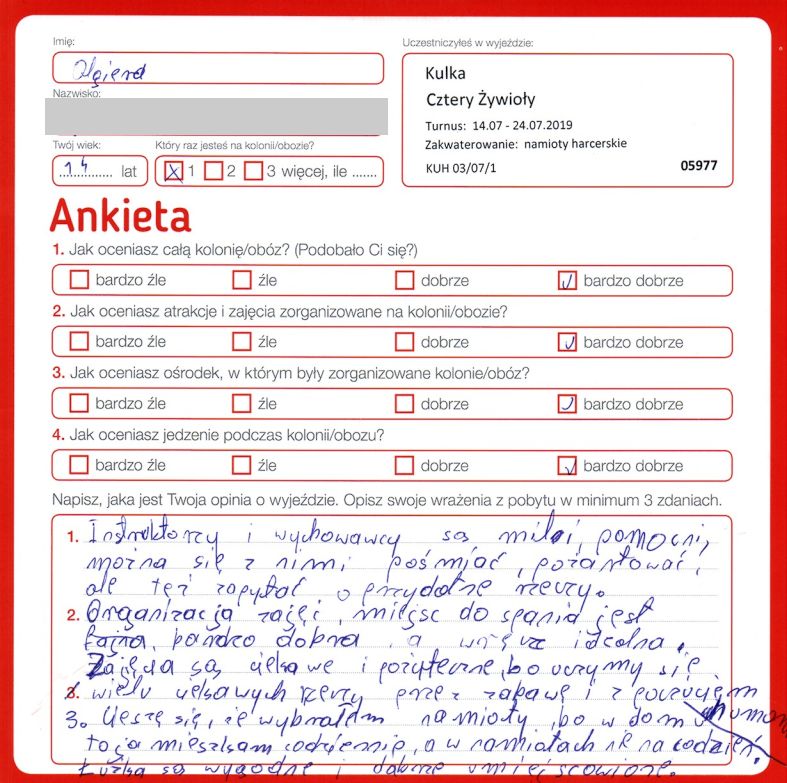 Imię:
Olgierd
Nazwisko:
Twój wiek:
14 lat
Który raz jesteś na kolonii/obozie?
X 1 2 3 więcej, ile .......
Uczestniczyłeś w wyjeździe:
Kulka
Cztery Żywioły
Turnus: 14.07 - 24.07.2019
Zakwaterowanie: namioty harcerskie
KUH 03/07/1 05977
Ankieta
1. Jak oceniasz całą kolonię/obóz? (Podobało Ci się?)
bardzo źle źle dobrze bardzo dobrze
2. Jak oceniasz atrakcje i zajęcia zorganizowane na kolonii/obozie?
bardzo źle źle dobrze bardzo dobrze
3. Jak oceniasz ośrodek, w którym były zorganizowane kolonie/obóz?
bardzo źle źle dobrze bardzo dobrze
4. Jak oceniasz jedzenie podczas kolonii/obozu?
bardzo źle źle dobrze bardzo dobrze
Napisz, jaka jest Twoja opinia o wyjeździe. Opisz swoje wrażenia z pobytu w minimum 3 zdaniach.
1. Instruktorzy i wychowawcy są mili, pomocni,
można się z nimi pośmiać, pożartować,
ale też zapytać o przydatne rzeczy.
2. Organizacja zajęć, miejsc do spania jest
fajna, bardzo dobra, a wręcz idealna.
Zajęcia są ciekawe i pożyteczne, bo uczymy się
3. wielu ciekawych rzeczy przez zabawę i z poczuciem
humoru
3. Cieszę się, że wybrałem namioty, bo w domu
to ja mieszkam codziennie, a w namiotach nie na codzień.
Łóżka są wygodne i dobrze umiejscowione.